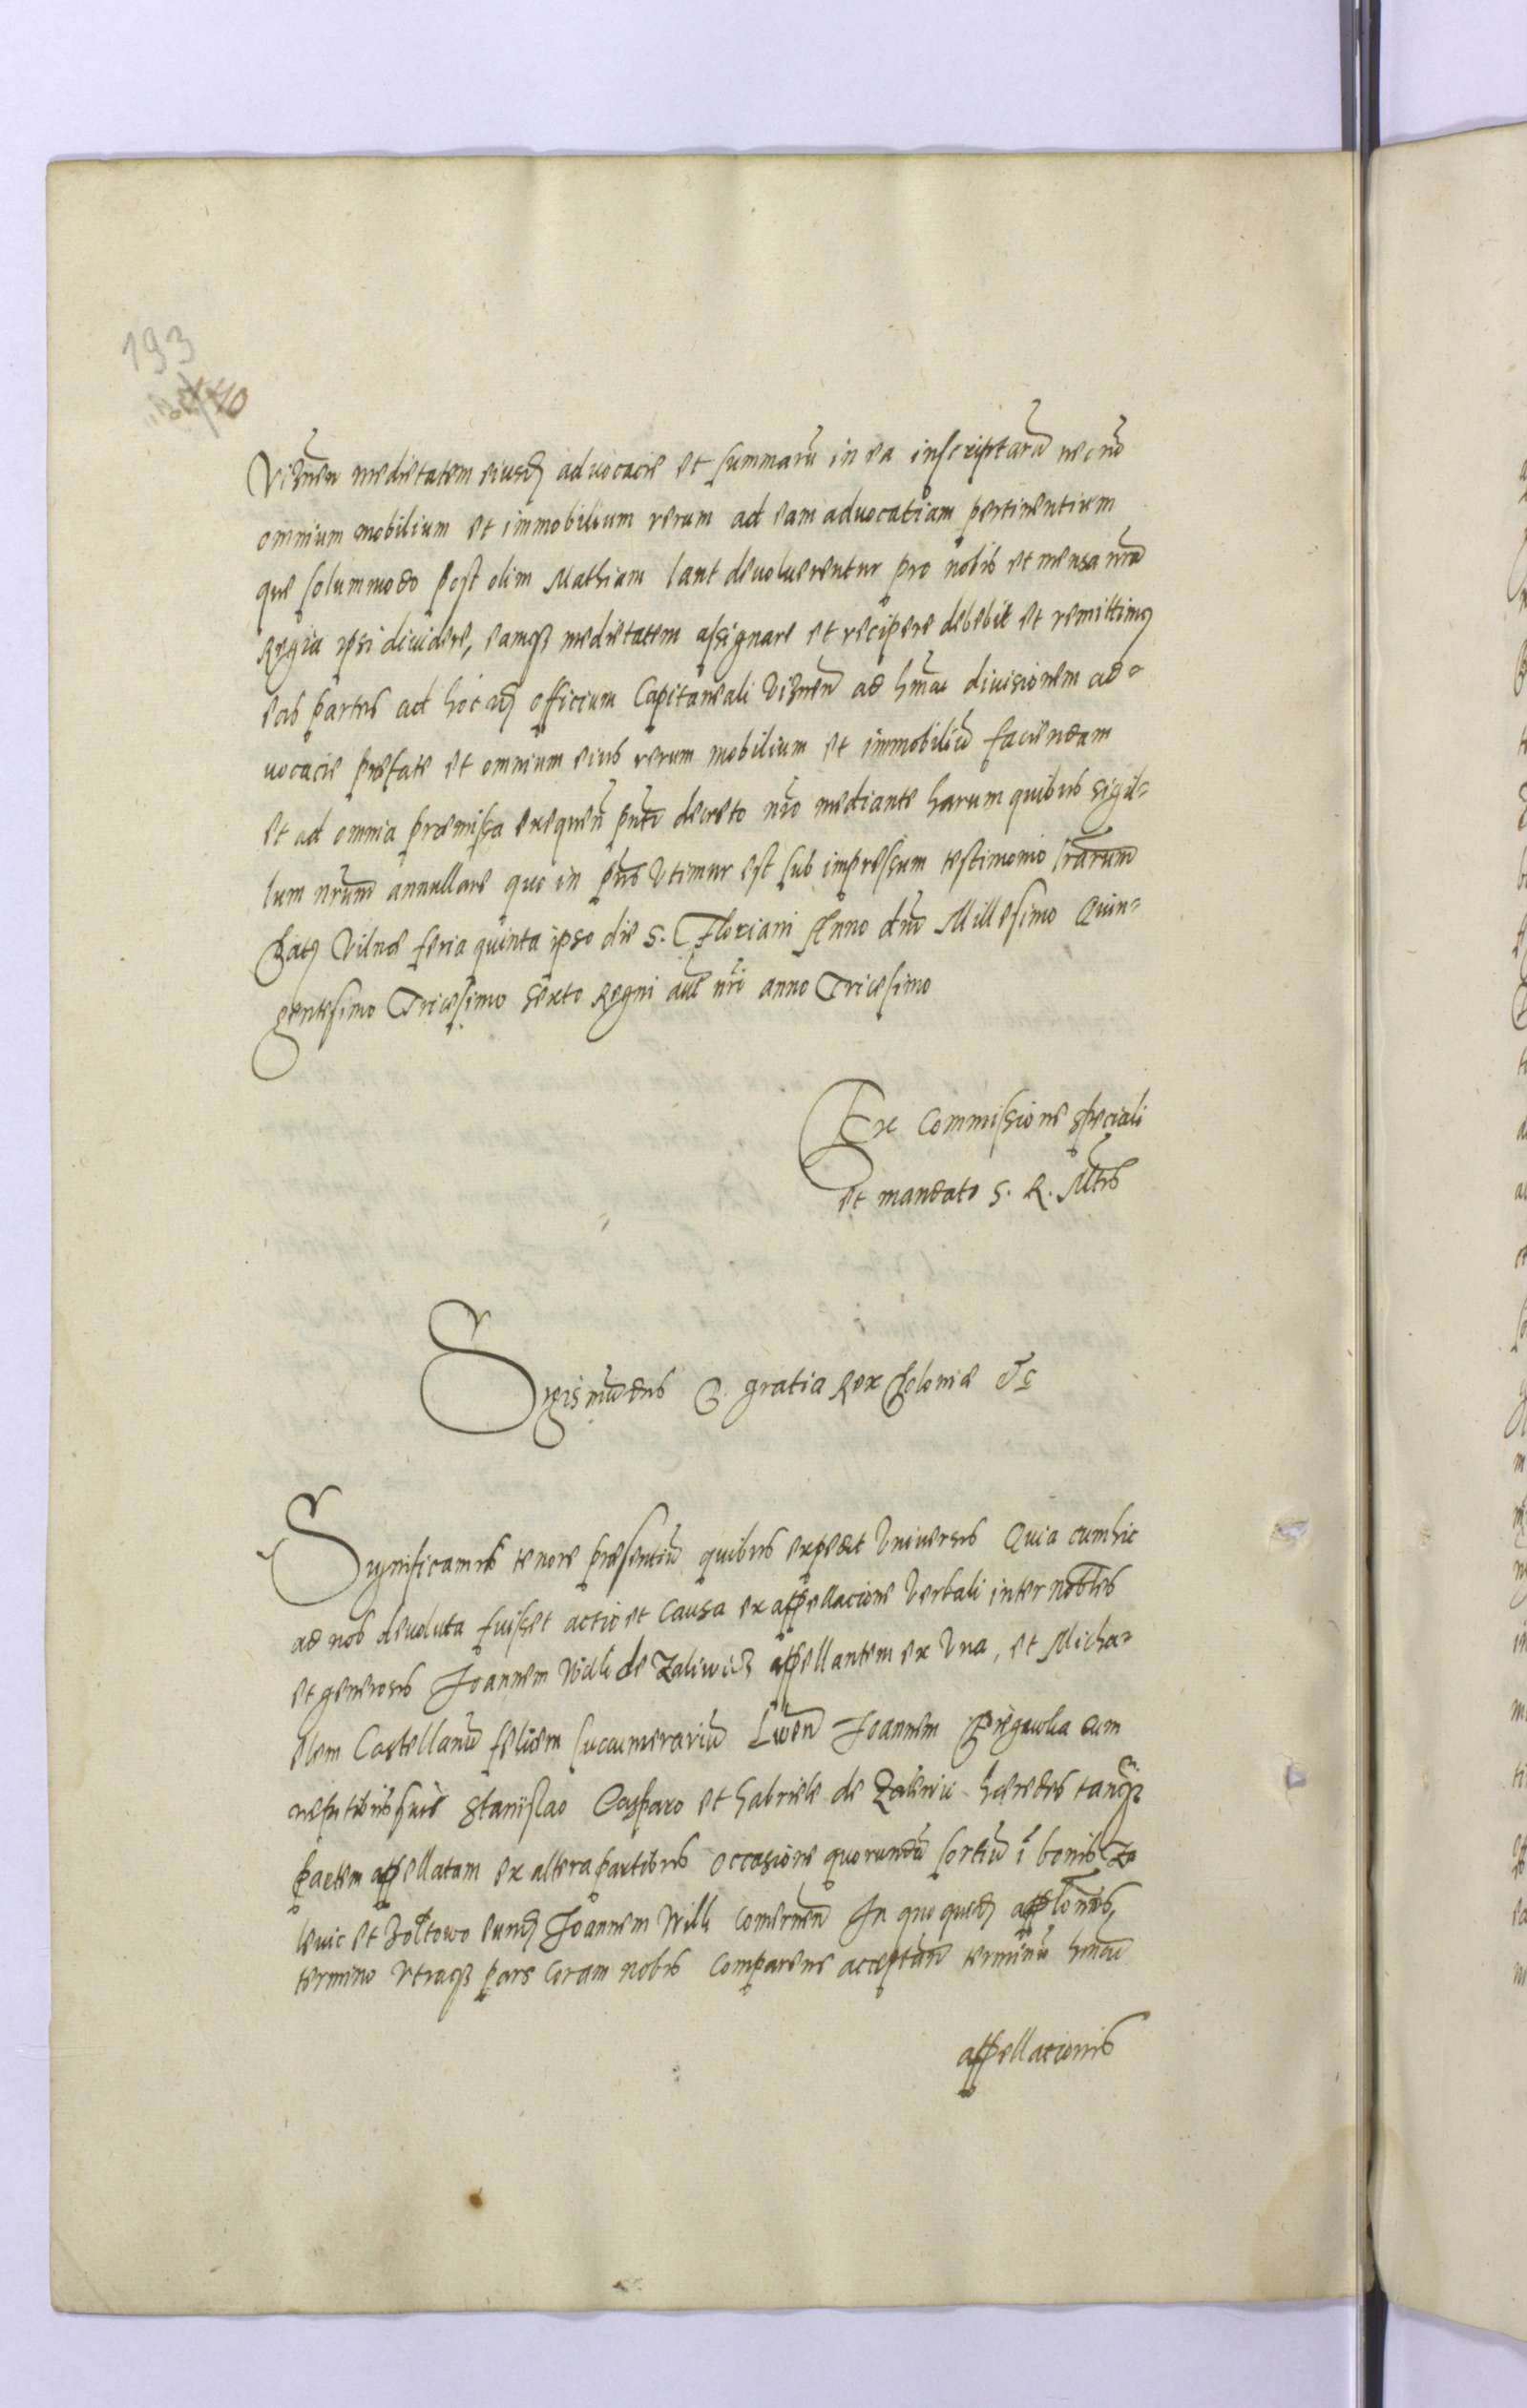 193
Viznen̄ medietatem eiusd. advocacie et summarū in ea inscriptarū necnō
omnium mobilium et immobilium rerum ad eam advocatiam pertinentium
que solummodo post olim Mathiam lant devoluerentur pro nobis et mensa nrā
Regia ipsi dividere, eamq3 medietatem assignare et recipere debebit et remittimus
eas partes ad hoc id officium Capitaneali Viznen̄ ad hmōi divisionem ad=
vocacie præfate et omnium eius rerum mobilium et immobiliū faciendam
et ad omnia præmissa exequen̄ pn̄ti decreto nrō mediante harum quibus sigil=
lum nrūm annullare quo in pn̄s Utimur est sub impressum testimonio lrārum
Dat. Vilnæ feria quinta ipso die S. Floriani Anno dnī Millesimo Quin=
gentesimo Tricesimo Sexto Regni autē nrī anno Tricesimo
Ex Commissione speciali
et mandato S. R. Mtis
Sigismūdus D. gratia Rex Poloniæ &c
Significamus tenore præsentiū quibus expedit Universis Quia cum hic
ad nos devoluta fuisset actio et Causa ex appellacione Verbali inter nobiles
et generosos Joannem Wilk de Zaliwic3 appellantem ex Una, et Micha=
elem Castellanū felicem succamerariū Lwen̄ Joannem cum
nepotibus suis Stanislao Casparo et Gabriele de hæredes tanq3
partem appellatam ex altera partibus occasione quorundā sortiū ī bonis Za
lewic et Zoltowo eund. Joannem Wilk Comernen̄ In quo quid. applōnis,
termino Utraq3 pars Coram nobis Comparens acceptan̄ terminū hmōi
appellationis